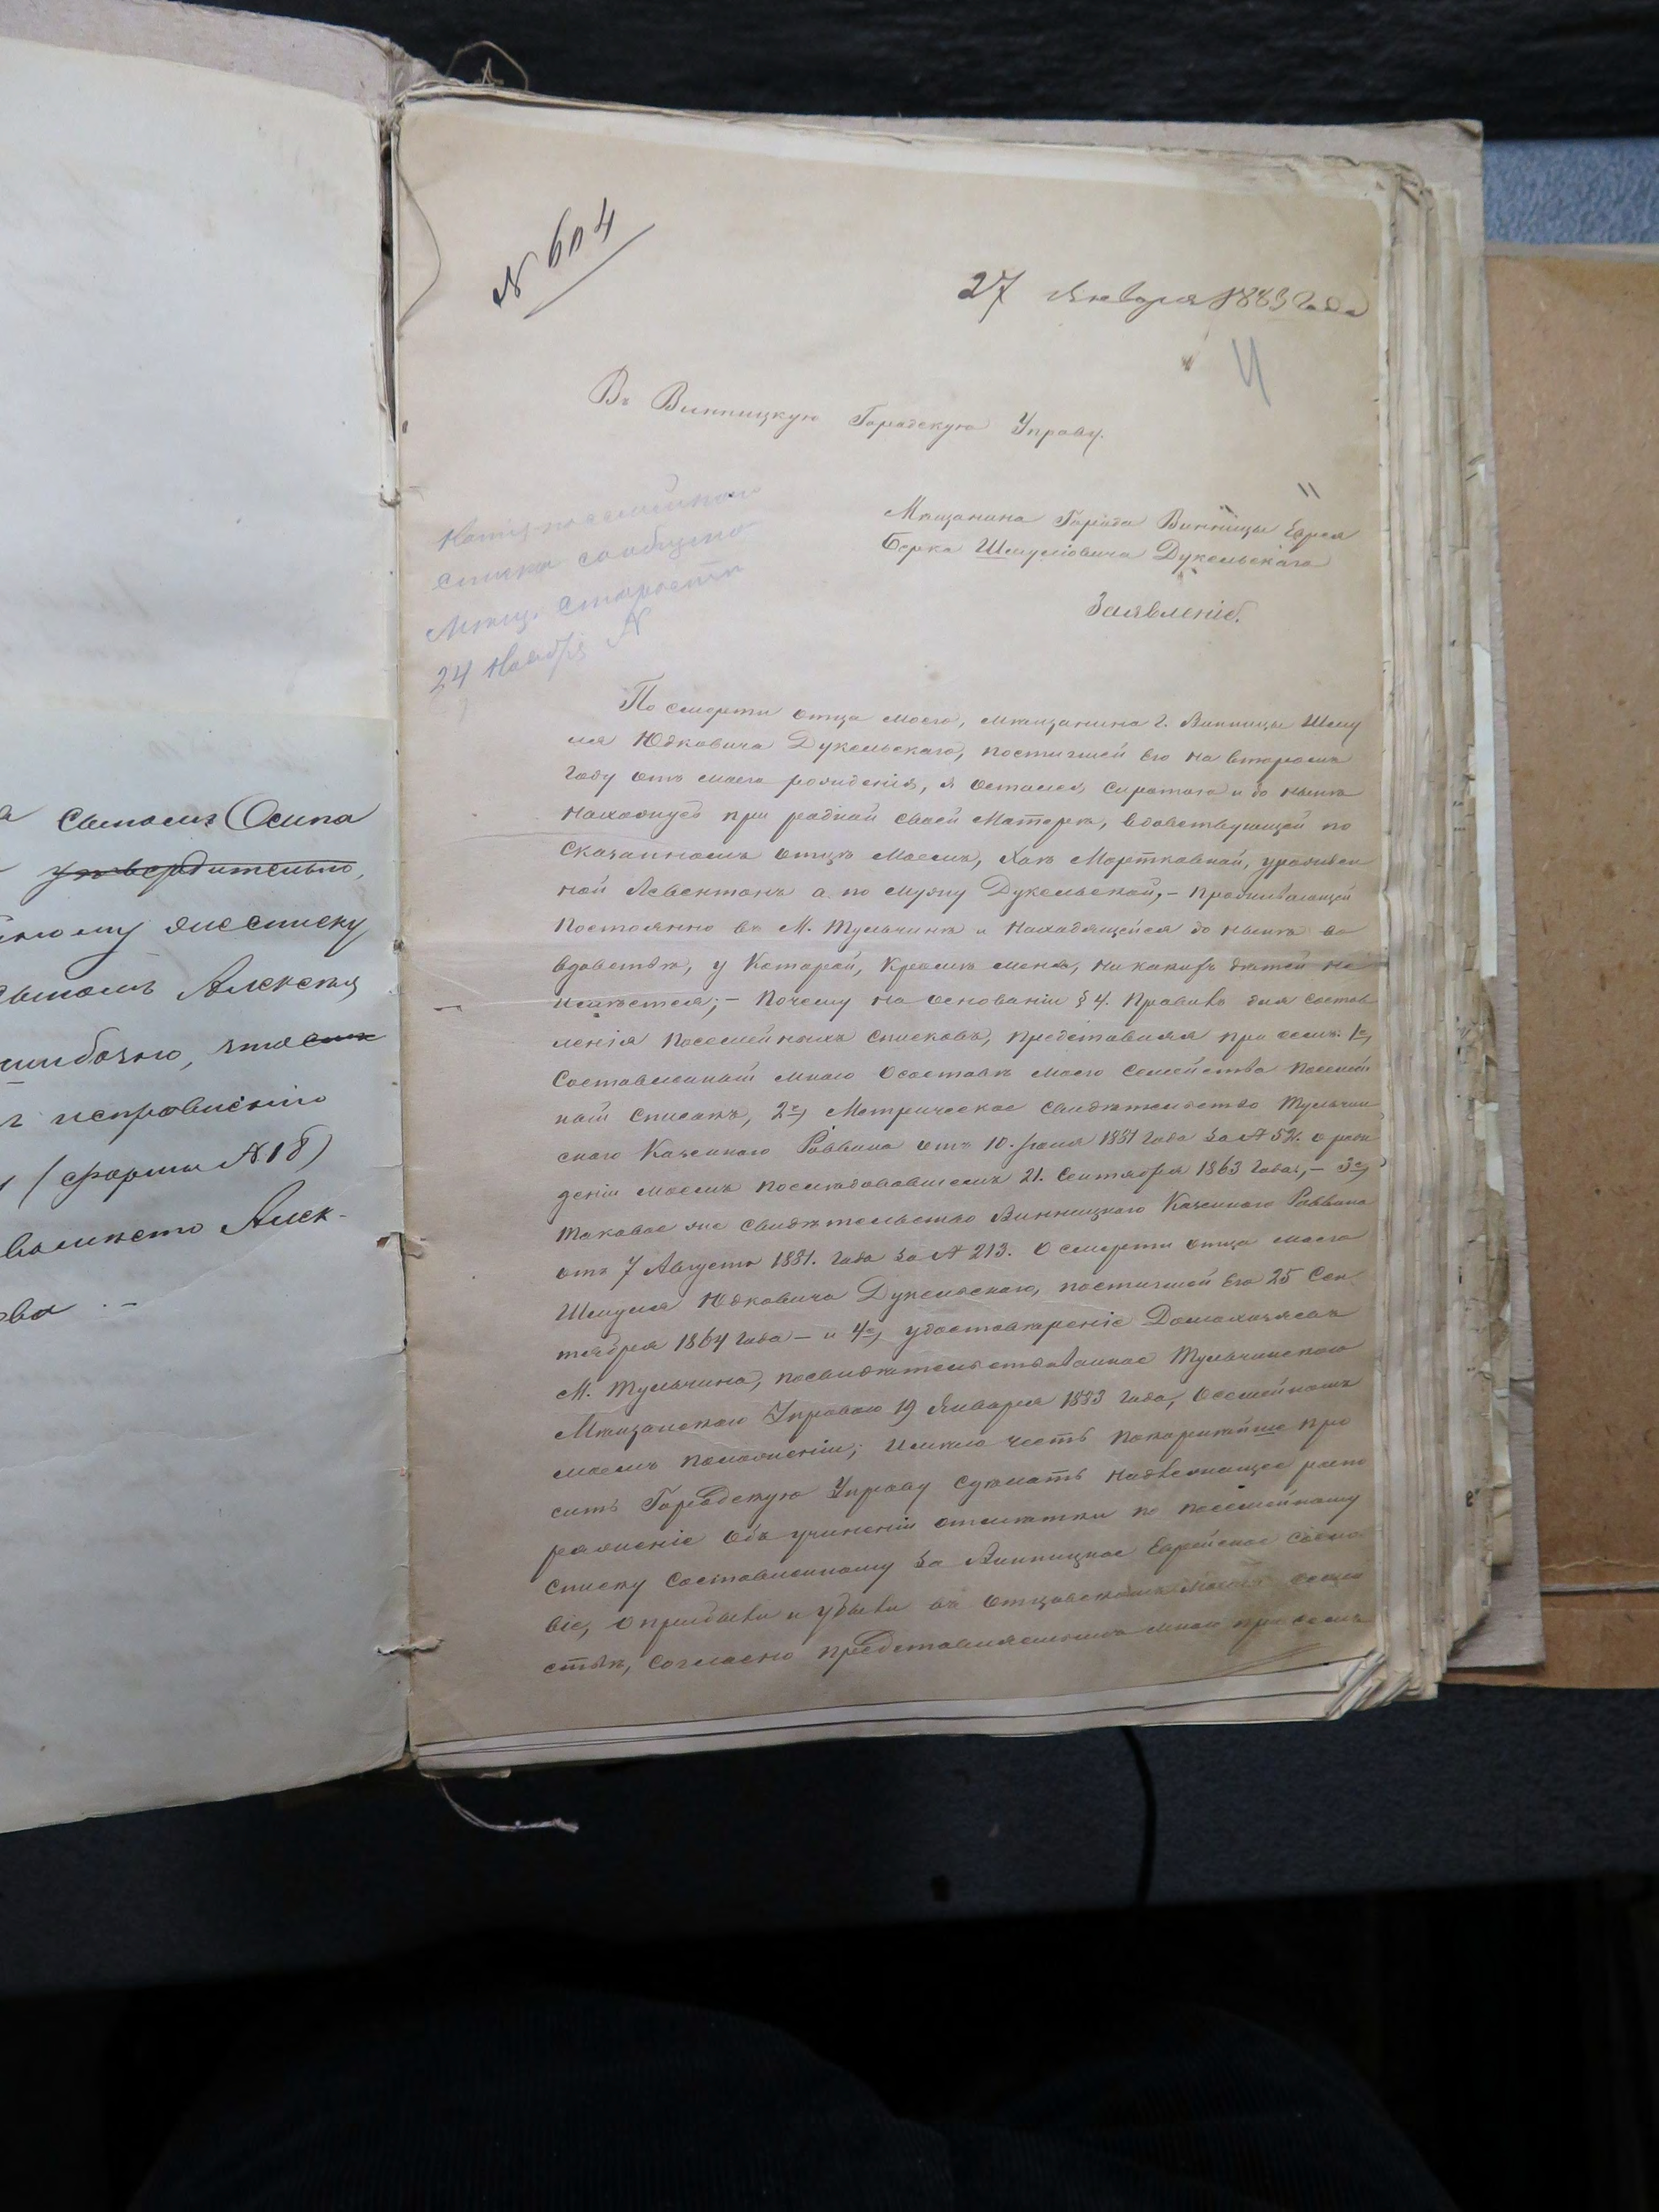 а сыномъ Осипа
утвердительно,
ному же списку
сыномъ Алексѣя
ошибочно, что
исправленію
(формы № 18)
вмѣсто Алек-
ва . –
№ 604
27 Января 1883 Года
4
Въ Винницкую Городскую Управу.
Мѣщанина Города Винницы Еврея
Берка Шмулiовича Дукельскаго
Заявленіе.
списка сообщено
Мѣщ. Старостѣ
24 Ноября №
По смерти отца моего, мѣщанина г. Винницы Шму
ля Юдковича Дукельскаго, постигшей его на второмъ
году отъ моего рожденія, я остался сиротою и до нынѣ
нахожусь при родной своей Матерѣ, вдовствующей по
сказанномъ отцѣ моемъ, Хаѣ Мортковной, урожден
ной Левентонъ а по мужу Дукельской, – проживающей
постоянно въ М. Тульчинѣ и находящейся до нынѣ во
вдовствѣ, у которой, кромѣ меня, никакихъ дѣтей не
имѣется; – Почему на основаніи § 4. Правилъ для состав
ленія посемейныхъ списковъ, представляя при семъ: 1е,
Составленный мною о составѣ моего семейства посемей
ный списокъ, 2е, Метрическое свидѣтельство Тульчин
скаго Казеннаго Раввина отъ 10. Іюля 1881 года за № 52. о рож
деніи моемъ послѣдовавшемъ 21. Сентября 1863 Года, – 3е,
таковое же свидѣтельство Винницкаго Казеннаго Раввина
отъ 7 Августа 1881. года за № 213. О смерти отца моего
Шмуля Юдковича Дукельскаго, постигшей его 25 Сен
тября 1864 года – и 4е, удостовѣреніе Домохозяевъ
М. Тульчина, посвидѣтельствованное Тульчинскою
Мѣщанскою Управою 19 Января 1883 года, о семейномъ
моемъ положеніи; имѣю честь покорнѣйше про
сить Городскую Управу сдѣлать надлежащее распо
ряженіе объ учиненіи отмѣтки по посемейному
списку составленному за Винницкое Еврейское сосло
віе, о прибыли и убыли въ отцовскомъ моемъ семей
ствѣ, согласно представляемымъ мною при семъ